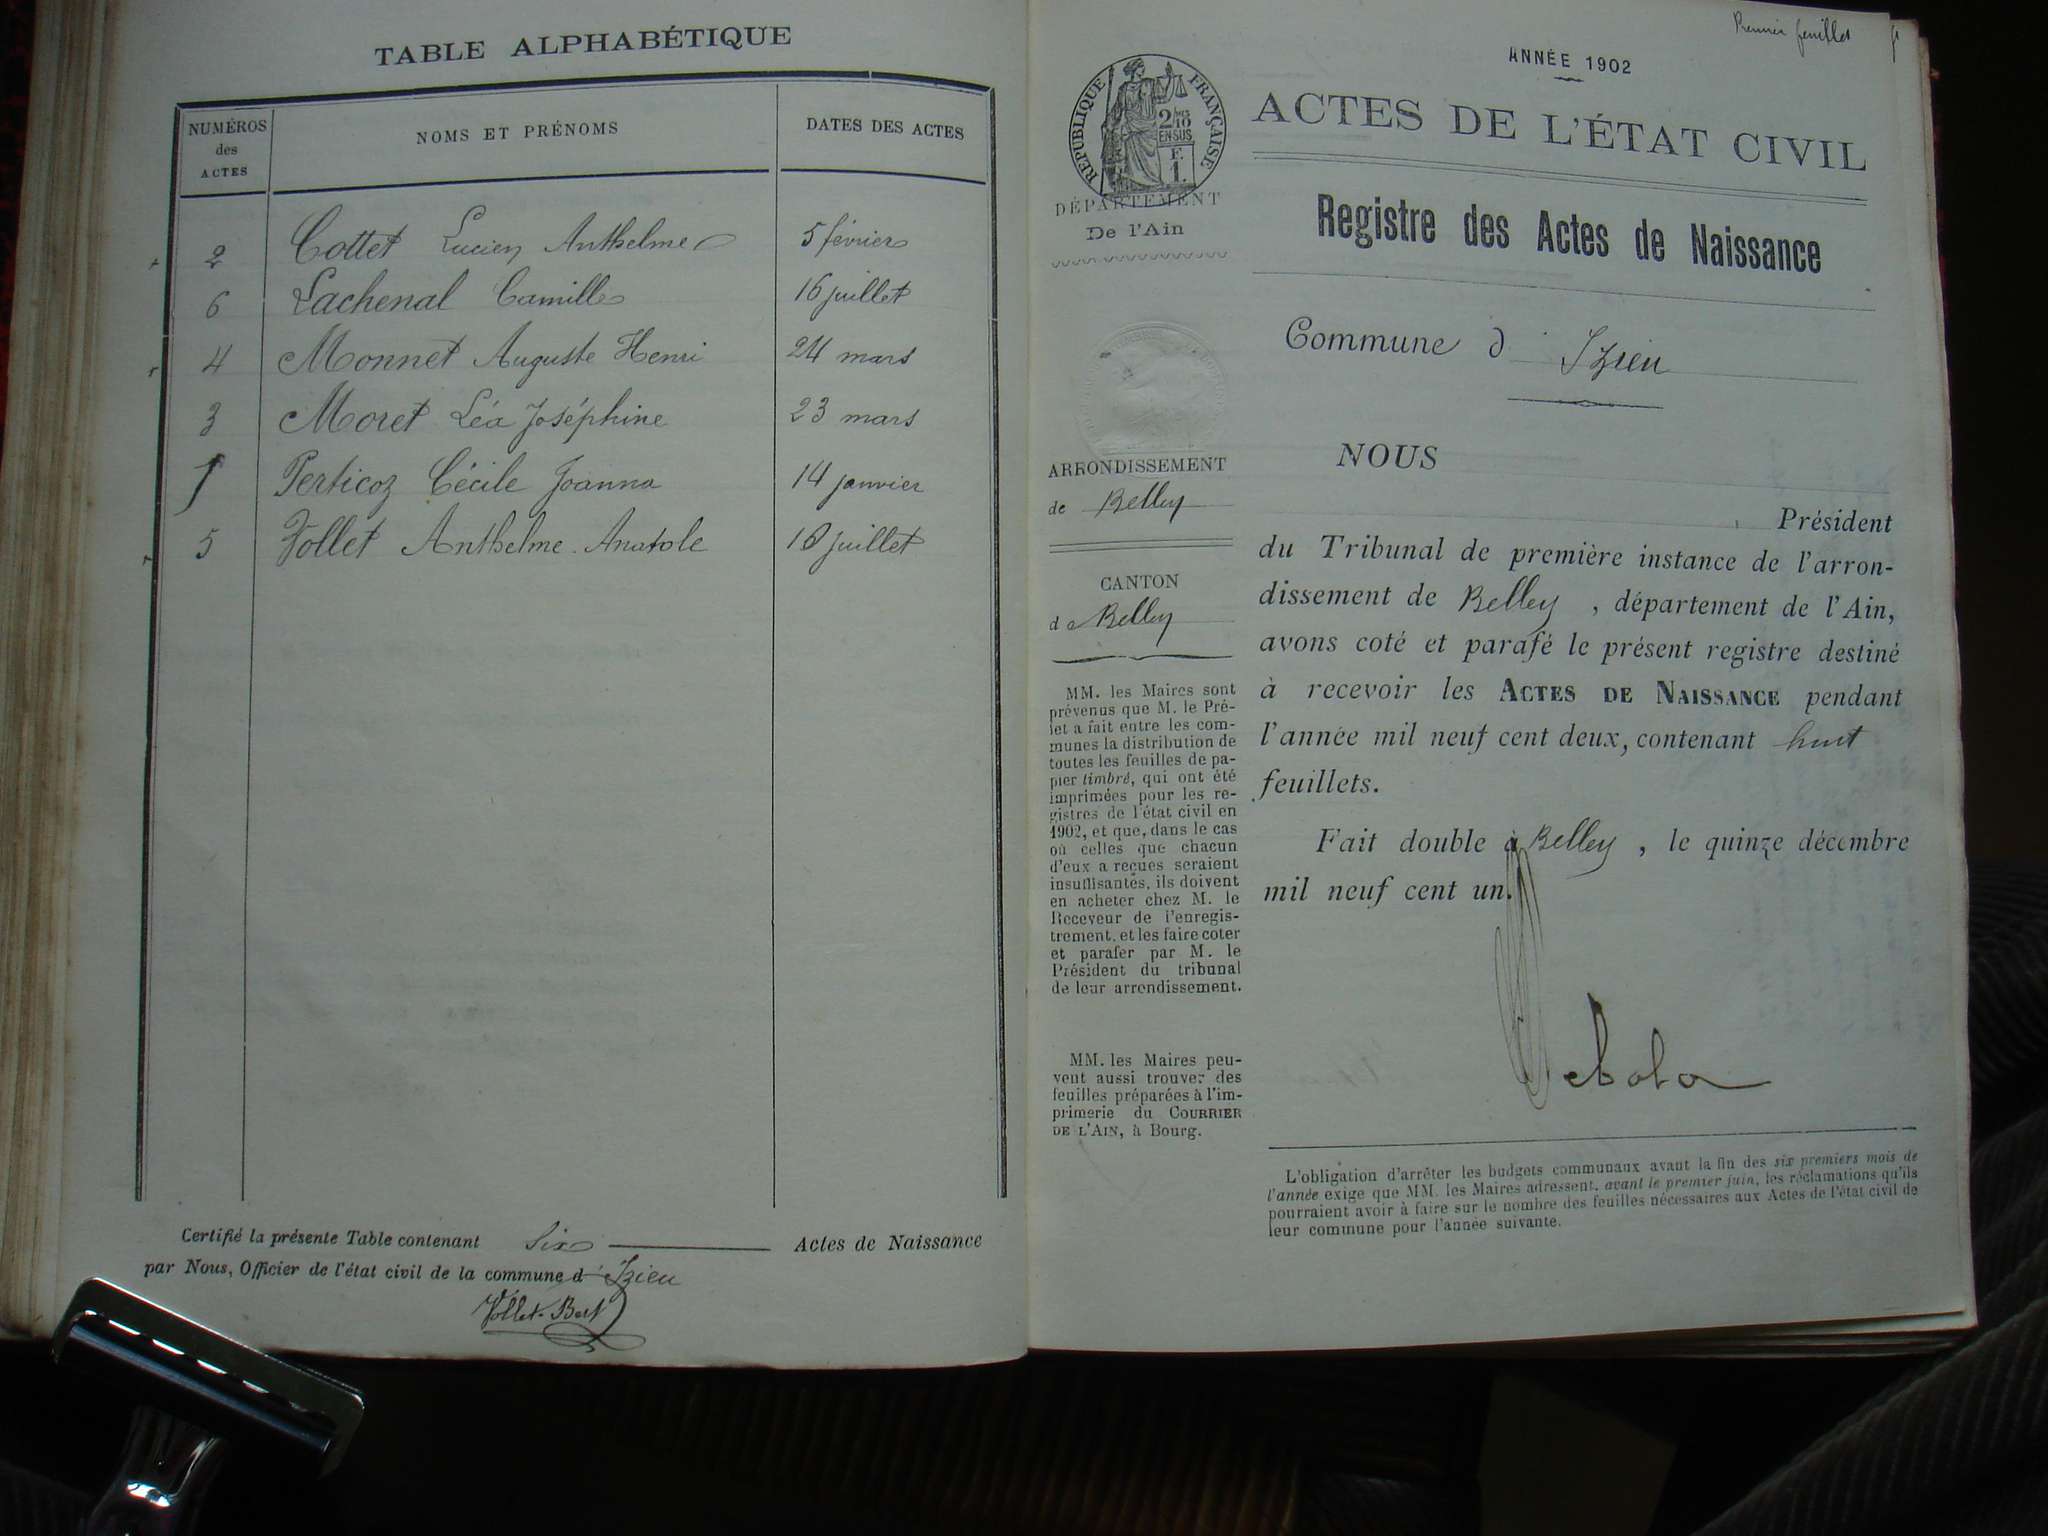 TABLE ALPHABÉTIQUE
NUMÉROS
des
ACTES
NOMS ET PRÉNOMS
DATES DES ACTES
2 Cottet Lucien Anthelme 5 février
6 Lachenal Camille 16 juillet
4 Monnet Auguste Henri 24 mars
3 Moret Léa Joséphine 23 mars
1 Perticoz Cécile Joanna 14 janvier
5 Vollet Anthelme Anatole 10 juillet
Certifié la présente Table contenant six Actes de Naissance
par Nous, Officier de l'état civil de la commune d'Izieu
Vollet-Bert
Premier feuillet
ANNÉE 1902
RÉPUBLIQUE FRANÇAISE
2/10
EN SUS
F.
1.
ACTES DE L'ÉTAT CIVIL
DÉPARTEMENT
De l'Ain
Registre des Actes de Naissance
Commune d' Izieu
ARRONDISSEMENT
de Belley
CANTON
de Belley
MM. les Maires sont
prévenus que M. le Pré-
fet a fait entre les com-
munes la distribution de
toutes les feuilles de pa-
pier timbré, qui ont été
imprimées pour les re-
gistres de l'état civil en
1902, et que, dans le cas
où celles que chacun
d'eux a reçues seraient
insuffisantes, ils doivent
en acheter chez M. le
Receveur de l'enregis-
trement, et les faire coter
et parafer par M. le
Président du tribunal
de leur arrondissement.
MM. les Maires peu-
vent aussi trouver des
feuilles préparées à l'im-
primerie du COURRIER
DE L'AIN, à Bourg.
NOUS
, Président
du Tribunal de première instance de l'arron-
dissement de Belley, département de l'Ain,
avons coté et parafé le présent registre destiné
à recevoir les ACTES DE NAISSANCE pendant
l'année mil neuf cent deux, contenant huit
feuillets.
Fait double à Belley, le quinze décembre
mil neuf cent un.
L'obligation d'arrêter les budgets communaux avant la fin des six premiers mois de
l'année exige que MM. les Maires adressent, avant le premier juin, les réclamations qu'ils
pourraient avoir à faire sur le nombre des feuilles nécessaires aux Actes de l'état civil de
leur commune pour l'année suivante.